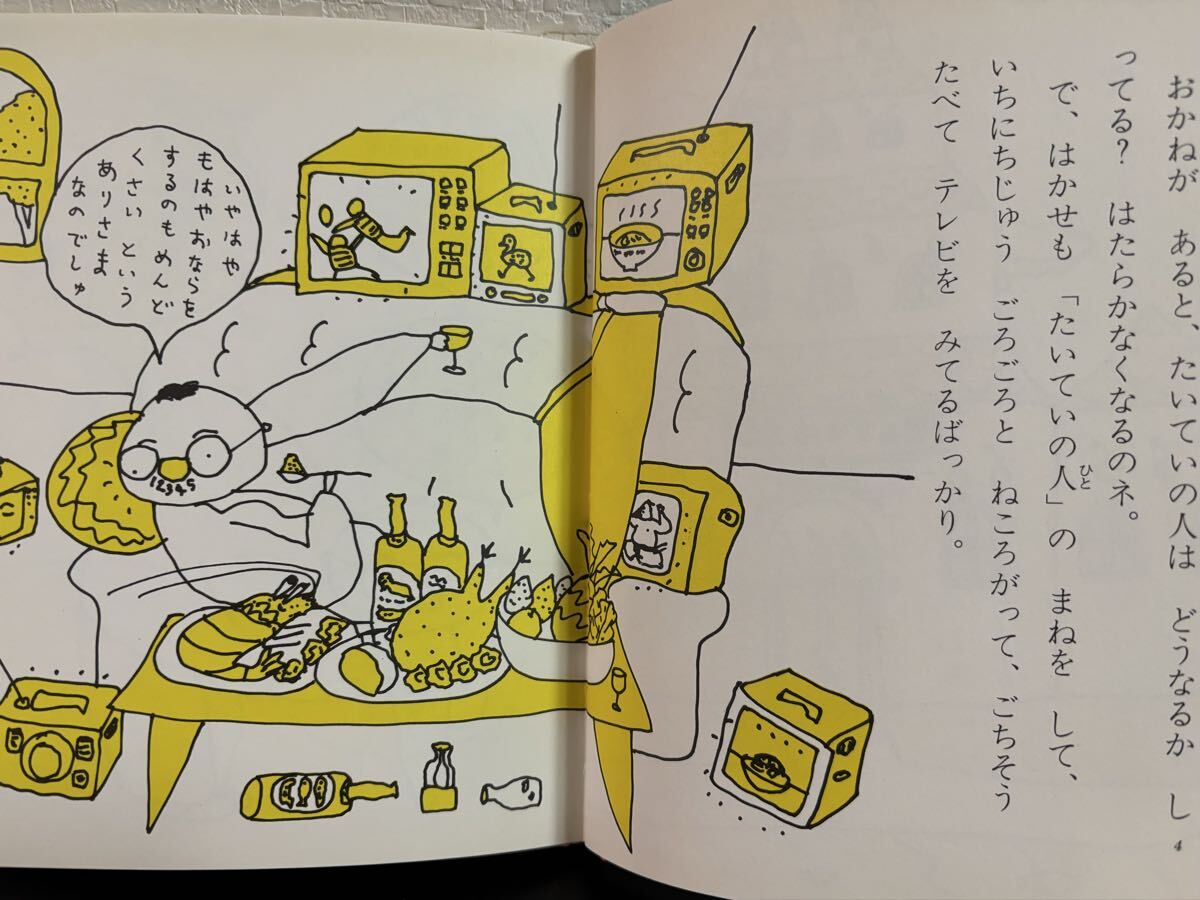 おかねが　あると、たいていの人は　どうなるか　し
ってる？　はたらかなくなるのネ。
で、はかせも　「たいていの人」の　まねを　して、
ひと
いちにちじゅう　ごろごろと　ねころがって、ごちそう
たべて　テレビを　みてるばっかり。
4
いやはや
もはやおならを
するのも めんど
くさい という
ありさま
なのでしゅ
12345